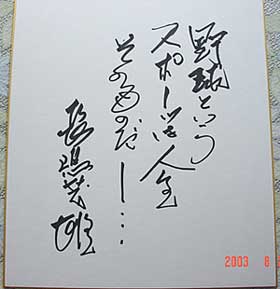 野球という
スポーツは人生
そのものだ!…
長嶋茂雄
2003 8